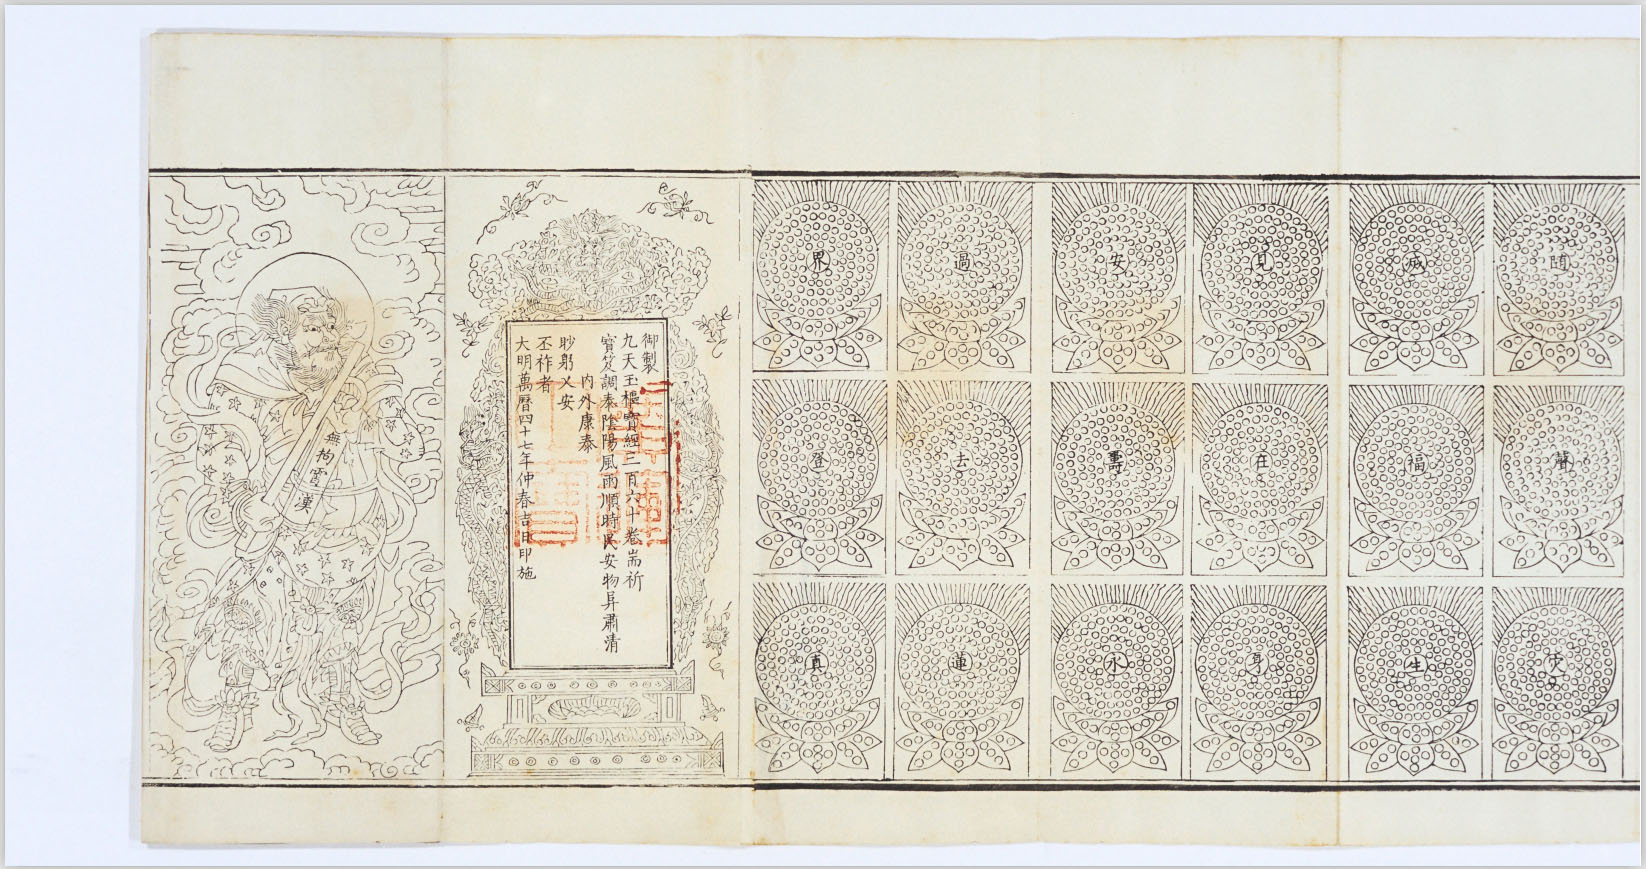 隨聲災
滅福生
見在身
安壽永
過去蓮
界登真
御製
九天玉樞寶經三百六十卷耑祈
寳笈調泰陰陽風雨順時民安物阜肅清
内外康泰
眇躬乂安
丕祚者
大明萬曆四十七年仲春吉日印施
無拘霄漢